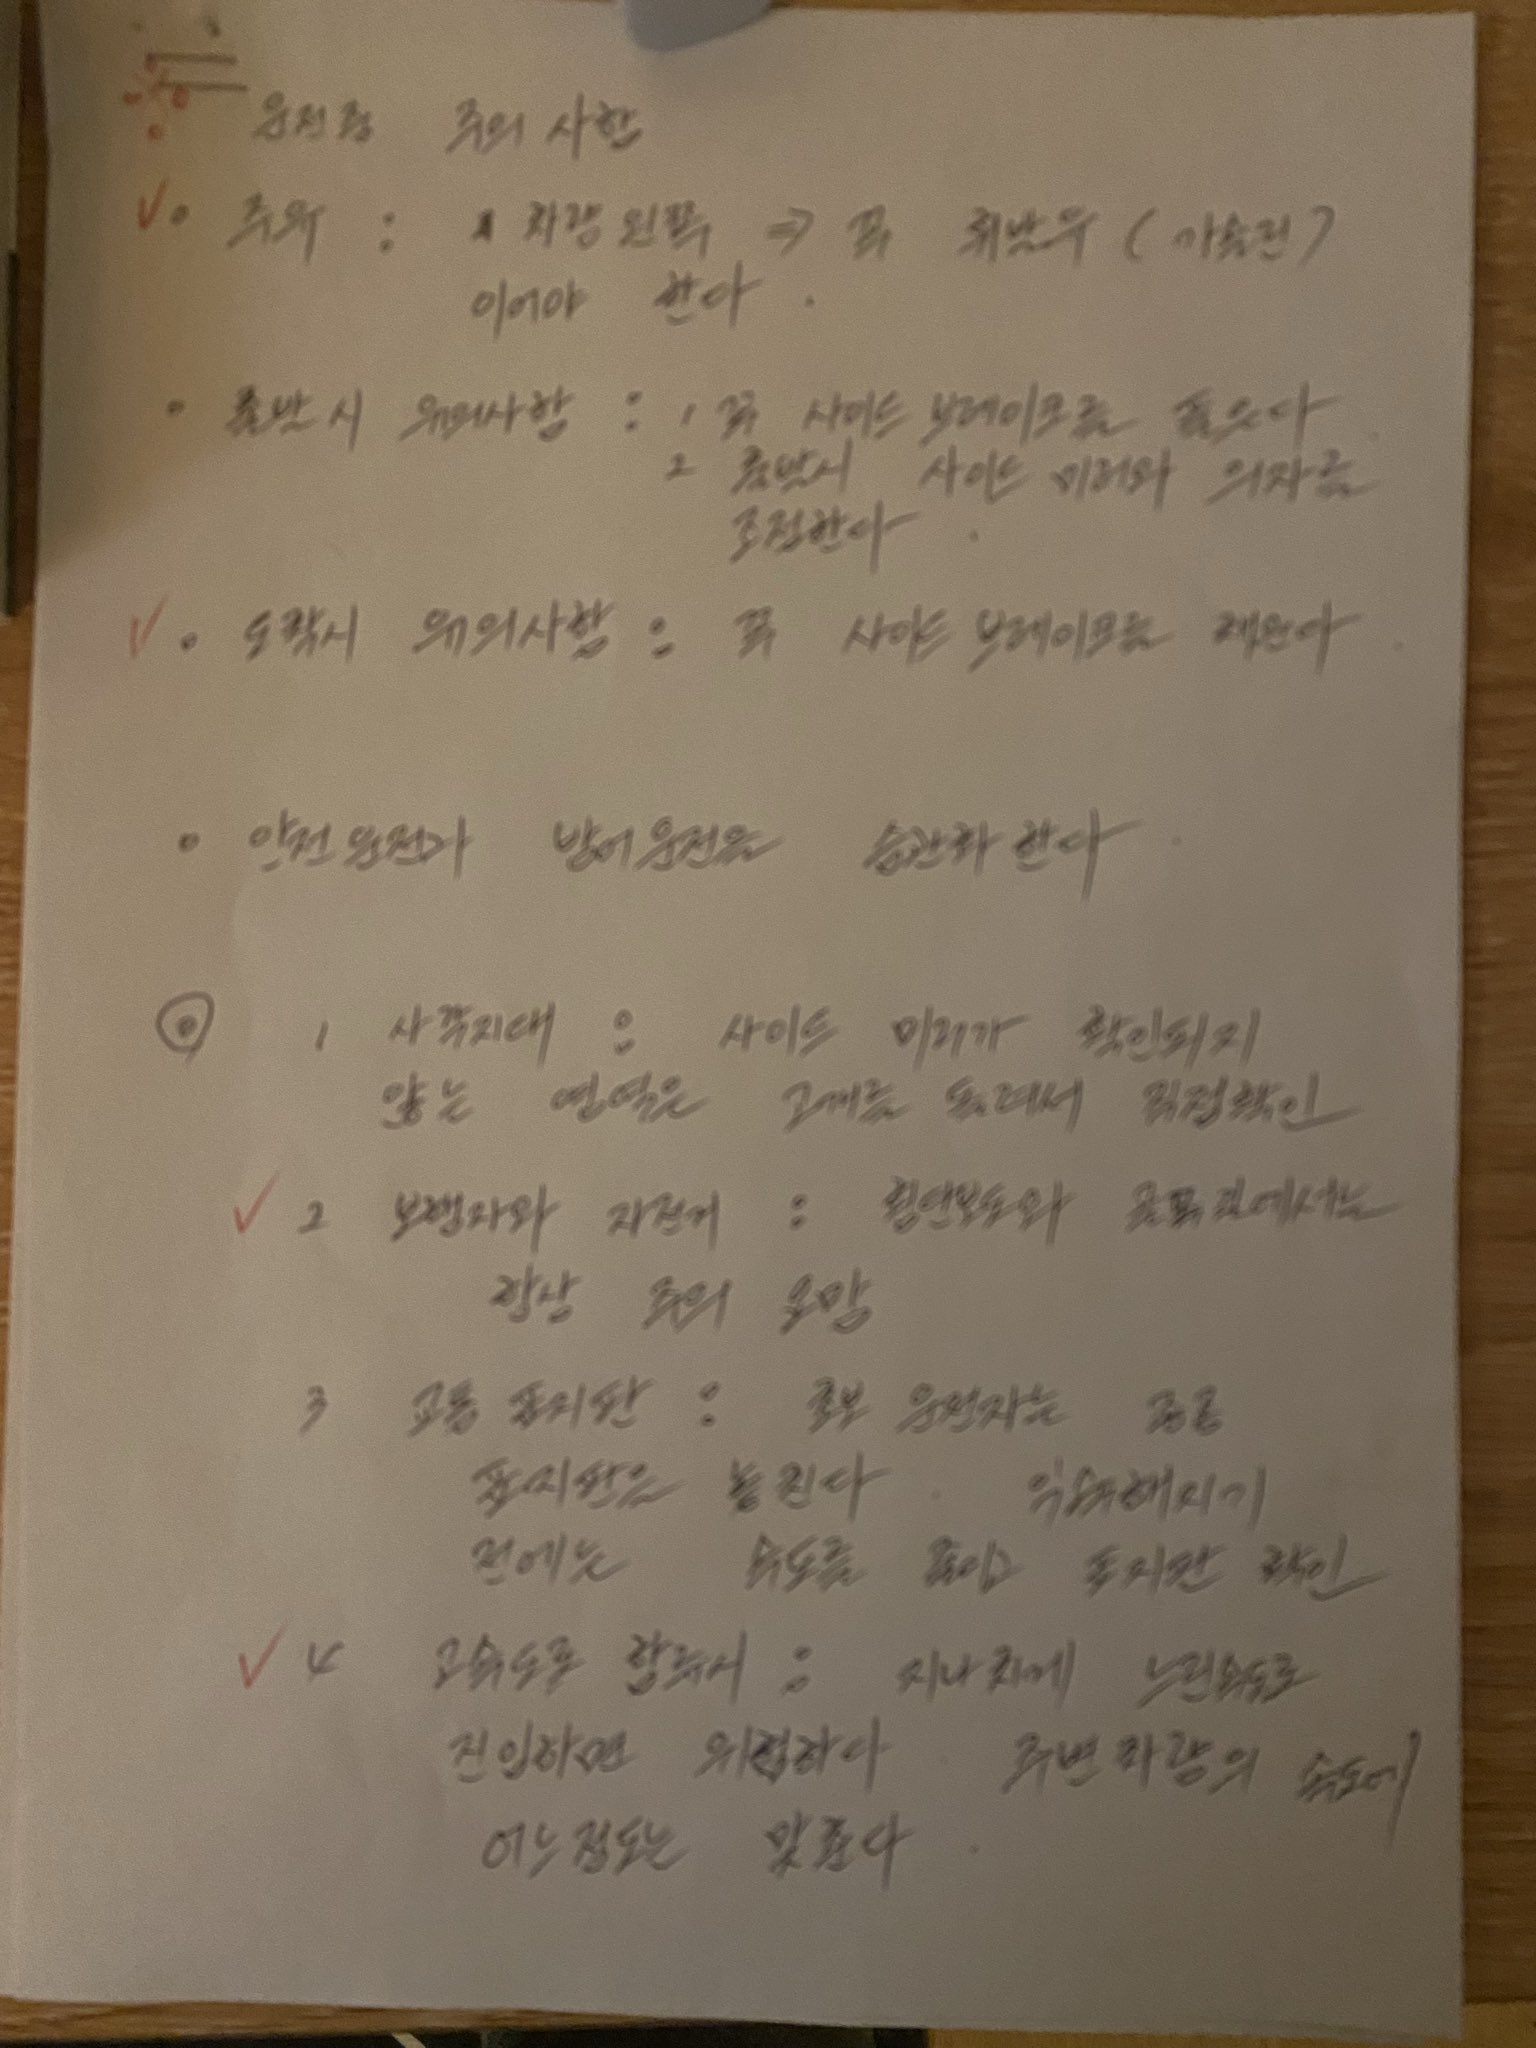 운전중 주의 사항
주유 : 차량왼쪽 => 꼭 휘발유 (가솔린)
이어야 한다.
출발시 유의사항 : 1 꼭 사이드 브레이크를 풀은다
2 출발시 사이드 미러와 의자를
조절한다.
도착시 유의사항 : 꼭 사이드 브레이크를 채운다.
안전운전과 방어운전을 습관화 한다.
1 사각지대 : 사이드 미러가 확인되지
않는 영역은 고개를 돌려서 직접확인
2 보행자와 자전거 : 횡단보도와 골목길에서는
항상 주의 요망
3 교통 표지판 : 초보 운전자는 종종
표지판을 놓친다. 익숙해지기
전에는 속도를 줄이고 표지판 확인
4 고속도로 합류시 : 지나치게 느린속도로
진입하면 위험하다 주변차량의 속도에
어느정도는 맞춘다.